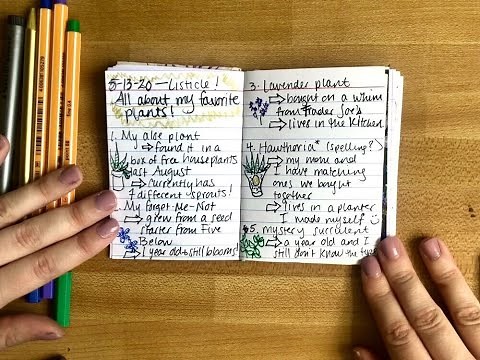 5-13-20 — Listicle!
All about my favorite
plants!
1. My aloe plant
→ found it in a
box of free houseplants
last August
→ currently has
7 different sprouts!
My forget-me-Not
→ grew from a seed
starter from Five
Below
→ 1 year old + still blooms!
3. lavender plant
→ bought on a whim
from Trader Joe's
→ lives in the kitchen
4. Hawthoria* (spelling?)
→ my mom and
I have matching
ones we bought
together
→ lives in a planter
I made myself
5. mystery succulent
→ a year old and I
still don't know the